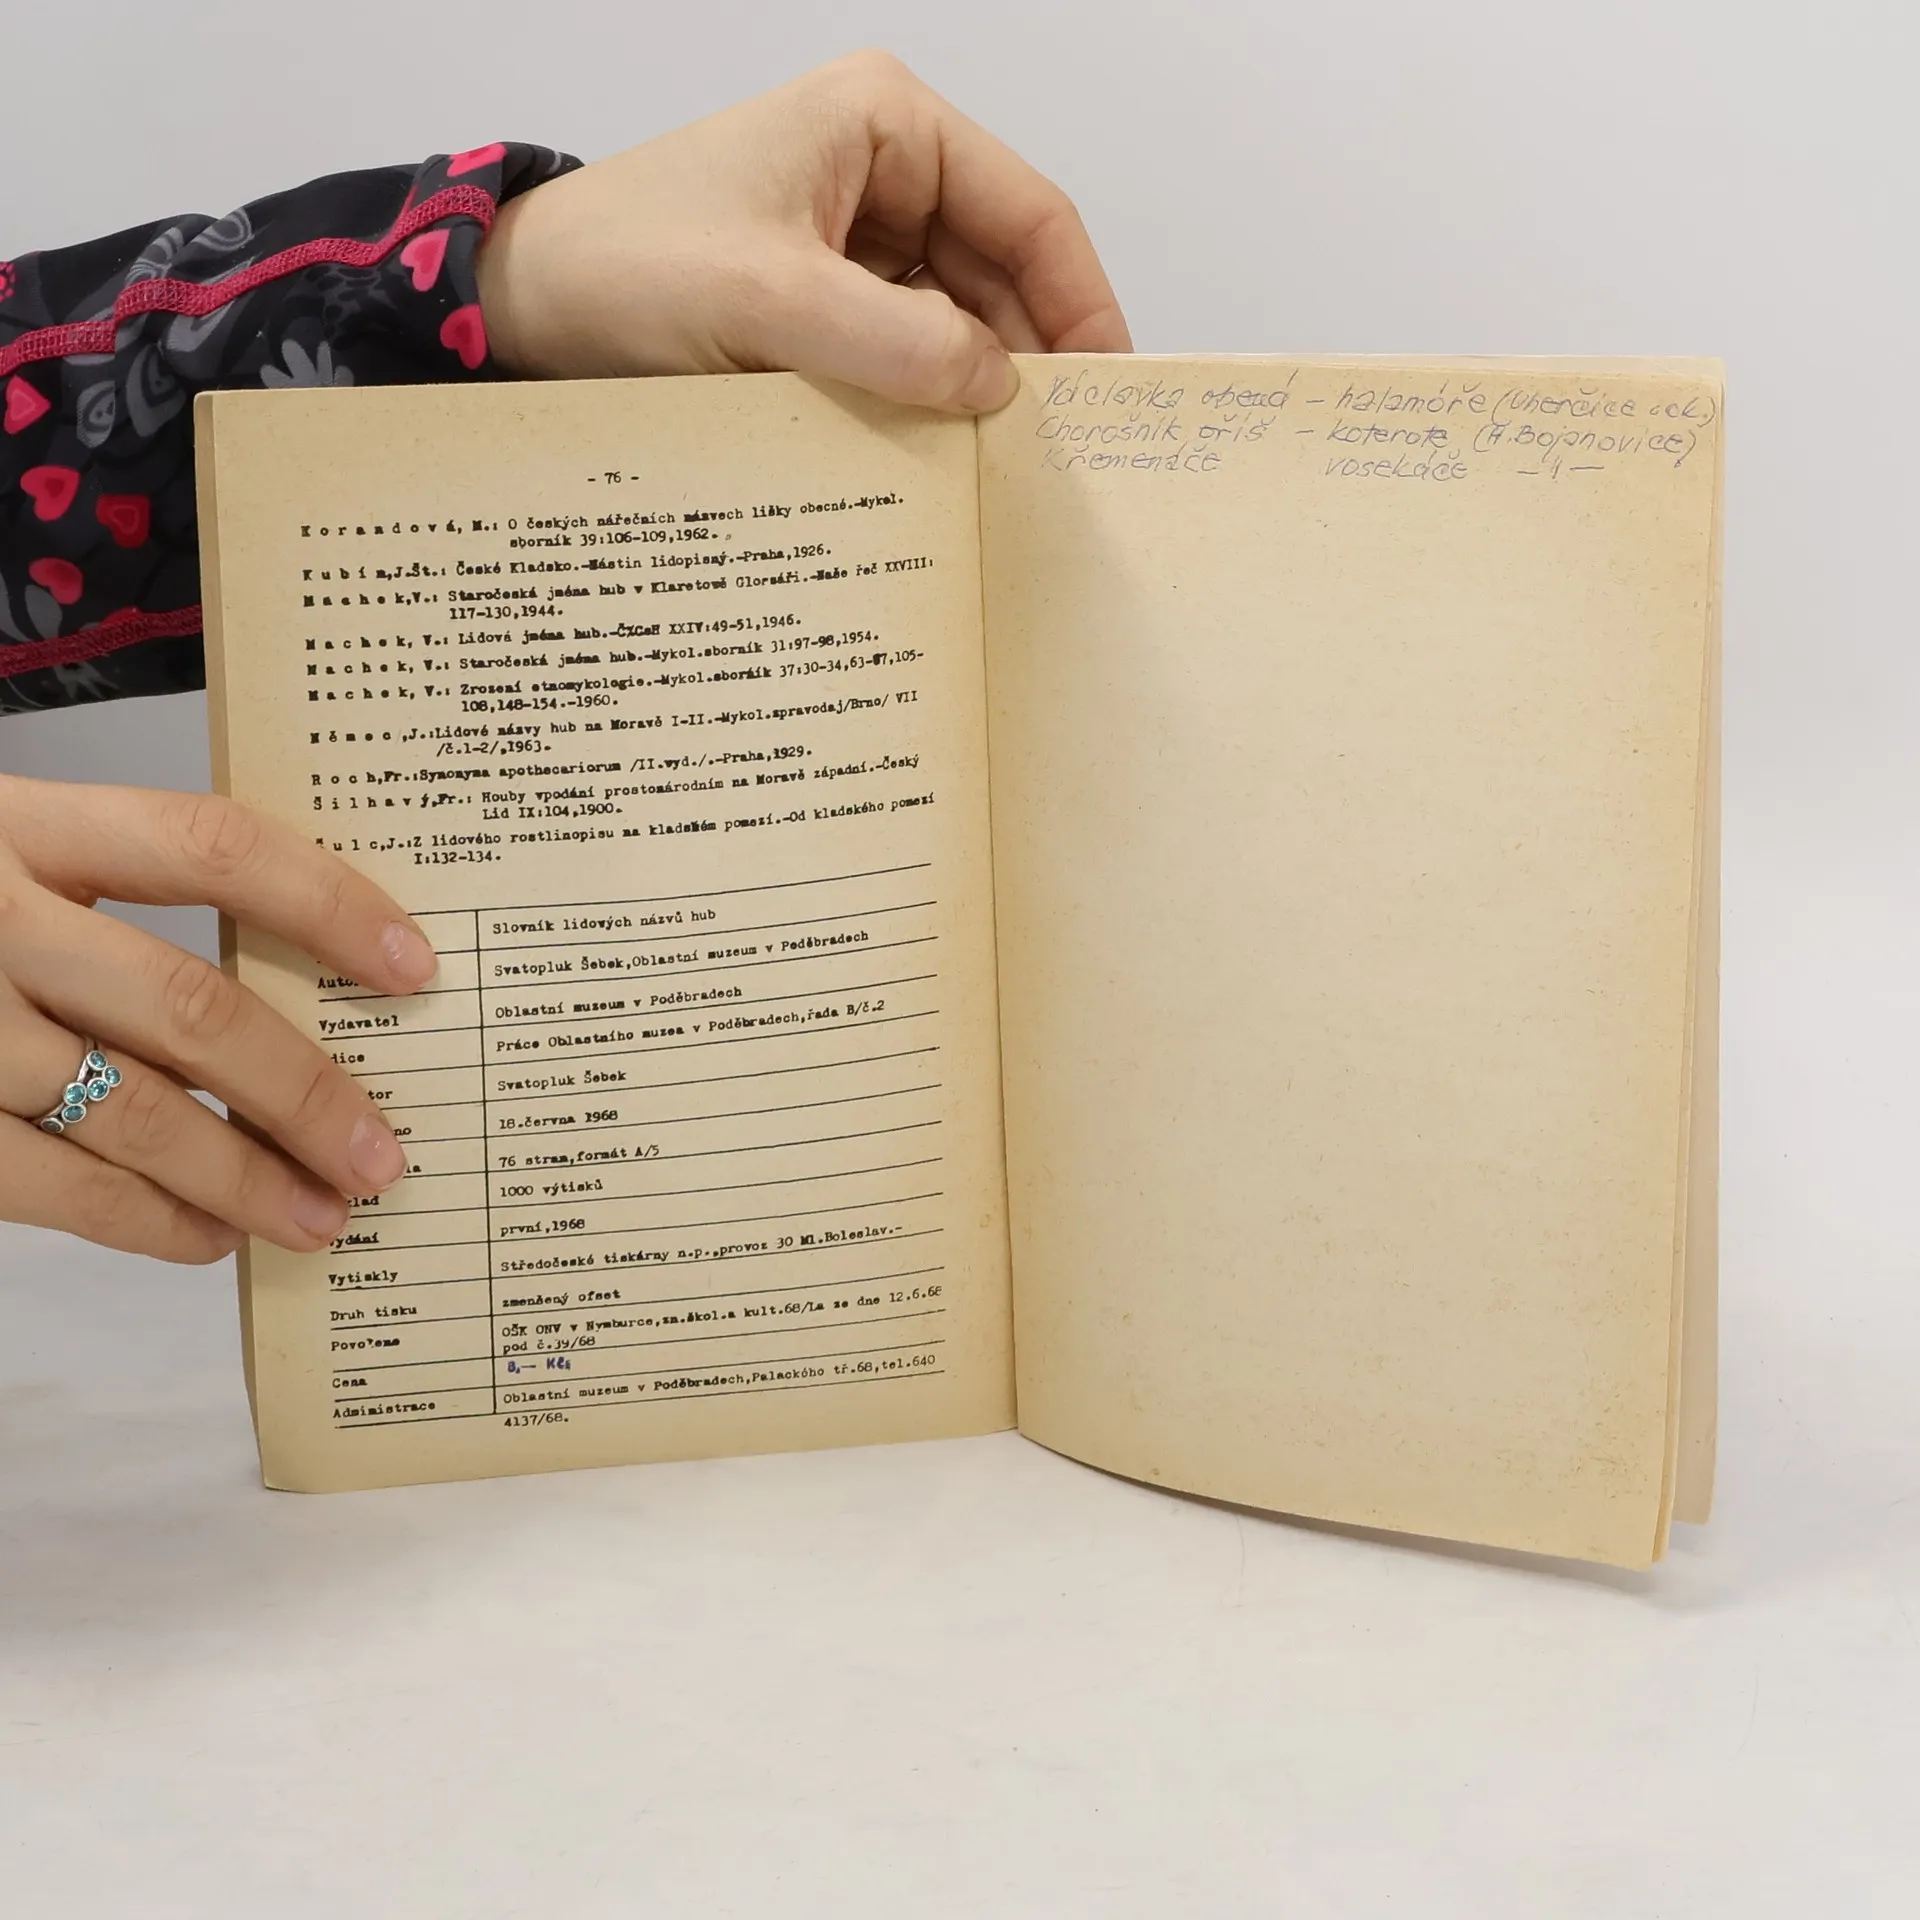 - 76 -
K o r a n d o v á, M.: O českých nářečních názvech lišky obecné.-Mykol.
sborník 39:106-109,1962.
K u b í n,J.Št.: České Kladsko.-Nástin lidopisný.-Praha,1926.
M a c h e k,V.: Staročeská jména hub v Klaretově Glosáři.-Naše řeč XXVIII:
117-130,1944.
M a c h e k, V.: Lidová jména hub.-ČČCsH XXIV:49-51,1946.
M a c h e k, V.: Staročeská jména hub.-Mykol.sborník 31:97-98,1954.
M a c h e k, V.: Zrození etnomykologie.-Mykol.sborník 37:30-34,63-67,105-
108,148-154.-1960.
N ě m e c ,J.:Lidové názvy hub na Moravě I-II.-Mykol.zpravodaj/Brno/ VII
/č.1-2/,1963.
R o c h,Fr.:Synonyma apothecariorum /II.vyd./.-Praha,1929.
Š i l h a v ý,Fr.: Houby vpodání prostonárodním na Moravě západní.-Český
Lid IX:104,1900.
u l c,J.:Z lidového rostlinopisu na kladském pomezí.-Od kladského pomezí
I:132-134.
Slovník lidových názvů hub
Auto Svatopluk Šebek,Oblastní muzeum v Poděbradech
Vydavatel Oblastní muzeum v Poděbradech
dice Práce Oblastního muzea v Poděbradech,řada B/č.2
tor Svatopluk Šebek
no 18.června 1968
ia 76 stran,formát A/5
klad 1000 výtisků
ydání první,1968
Vytiskly Středočeské tiskárny n.p.,provoz 30 Ml.Boleslav.-
Druh tisku zmenšený ofset
Povoleno OŠK ONV v Nymburce,zn.škol.a kult.68/La ze dne 12.6.68
pod č.39/68
Cena 8,— Kčs
Administrace Oblastní muzeum v Poděbradech,Palackého tř.68,tel.640
4137/68.
Václavka obecná – halamóře (Uherčice ok.)
Chorošník oříš – koterote (H. Bojanovice)
Křemenáče vosekáče – " –